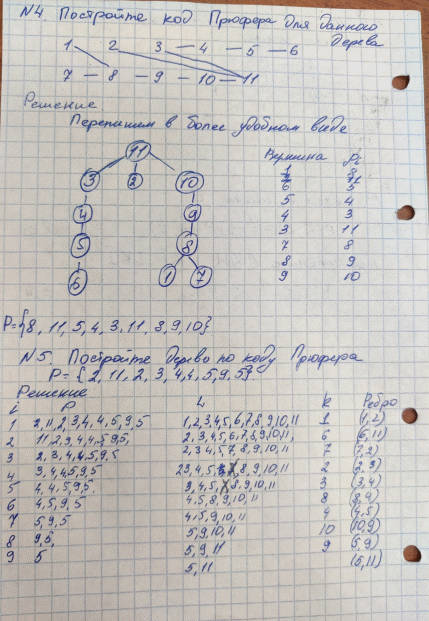 №4 Постройте код Прюфера для данного
дерева
1 2 3 — 4 — 5 — 6
7 — 8 — 9 — 10 — 11
Решение
Перепишем в более удобном виде
11
3 2 10
4 9
5 8
6 1 7
Вершина Pi
1 8
2 11
6 5
5 4
4 3
3 11
7 8
8 9
9 10
P={8, 11, 5, 4, 3, 11, 8, 9, 10}
№5. Постройте дерево по коду Прюфера
P= {2, 11, 2, 3, 4, 4, 5, 9, 5}.
Решение
i P L k Ребро
1 2, 11, 2, 3, 4, 4, 5, 9, 5 1, 2, 3, 4, 5, 6, 7, 8, 9, 10, 11 1 (1, 2)
2 11, 2, 3, 4, 4, 5, 9, 5, 2, 3, 4, 5, 6, 7, 8, 9, 10, 11, 6 (6, 11)
3 2, 3, 4, 4, 5, 9, 5 2, 3, 4, 5, 7, 8, 9, 10, 11 7 (7, 2)
4 3, 4, 4, 5, 9, 5 2 3, 4, 5, 8, 9, 10, 11 2 (2, 3)
5 4, 4, 5, 9, 5, 3, 4, 5, 8, 9, 10, 11 3 (3, 4)
6 4, 5, 9, 5 4, 5, 8, 9, 10, 11 8 (8, 4)
7 5, 9, 5 4, 5, 9, 10, 11 4 (4, 5)
8 9, 5, 5, 9, 10, 11 10 (10, 9)
9 5 5, 9, 11 9 (5, 9)
5, 11 (5, 11)